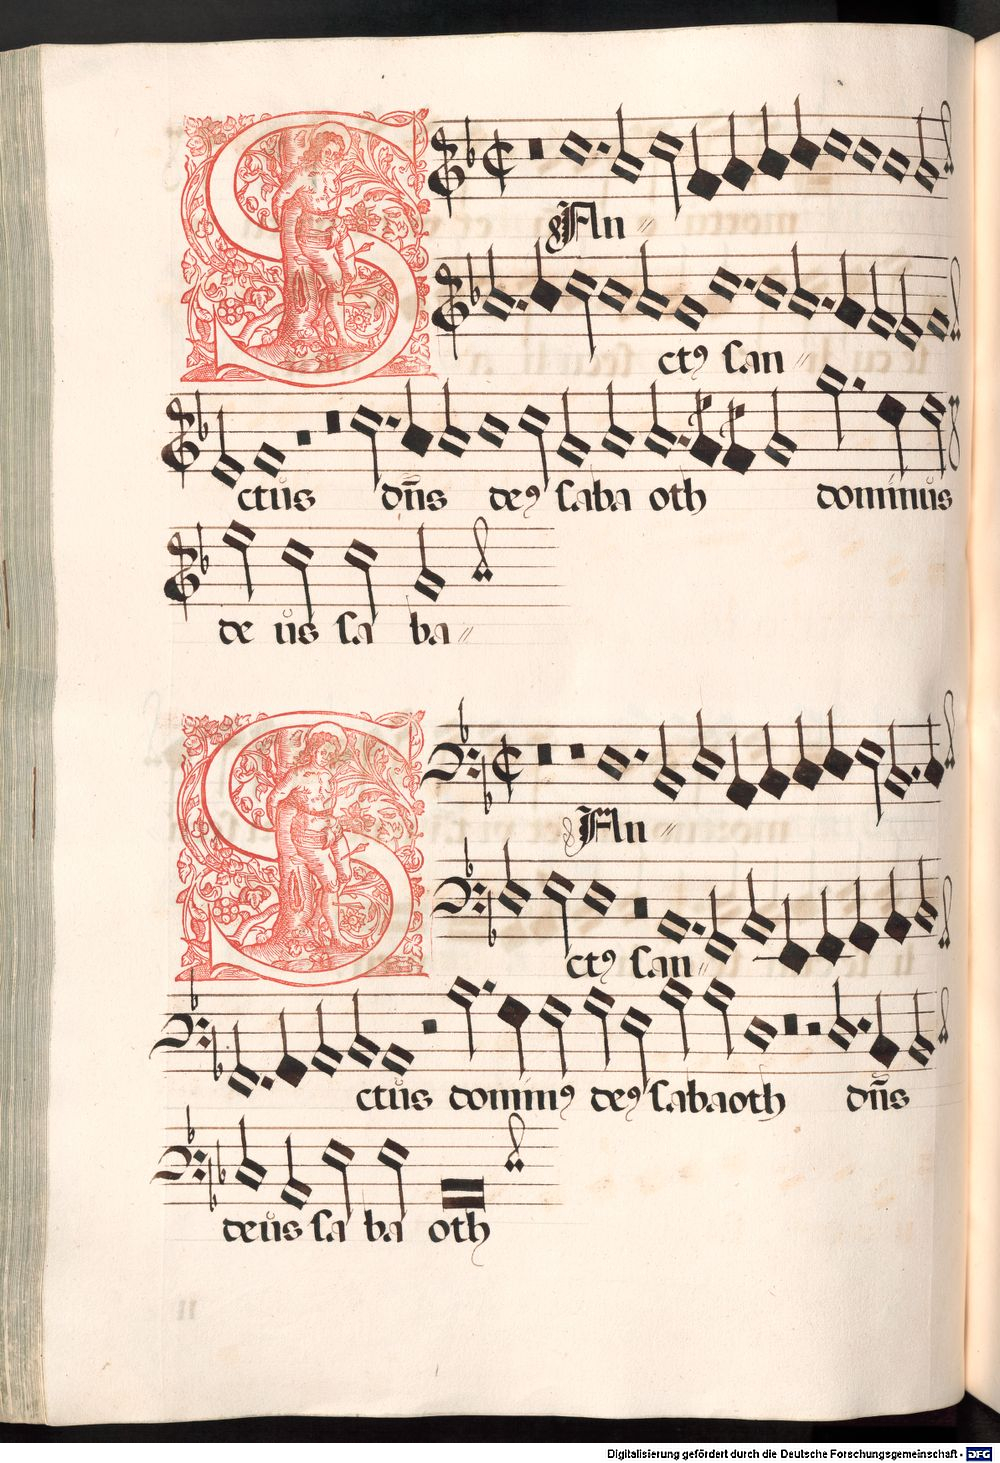 SAn〃
ctꝰ san〃
ctus dn̄s deꝰ saba oth dominus
de us sa ba〃
SAn〃
ctꝰ san〃
ctus dominꝰ deꝰ sabaoth dn̄s
deus sa ba oth
Digitalisierung gefördert durch die Deutsche Forschungsgemeinschaft - DFG